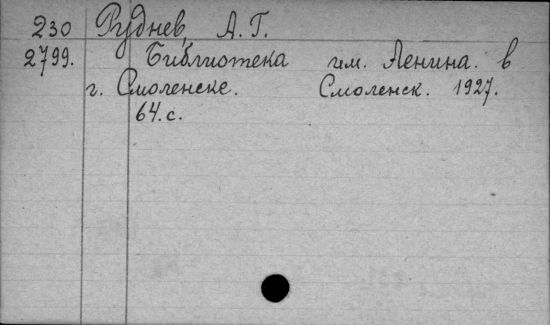 230 Руднев, А. Г.
2799. Библиотека им. Ленина. в
г. Смоленске. Смоленск. 1927.
64. с.